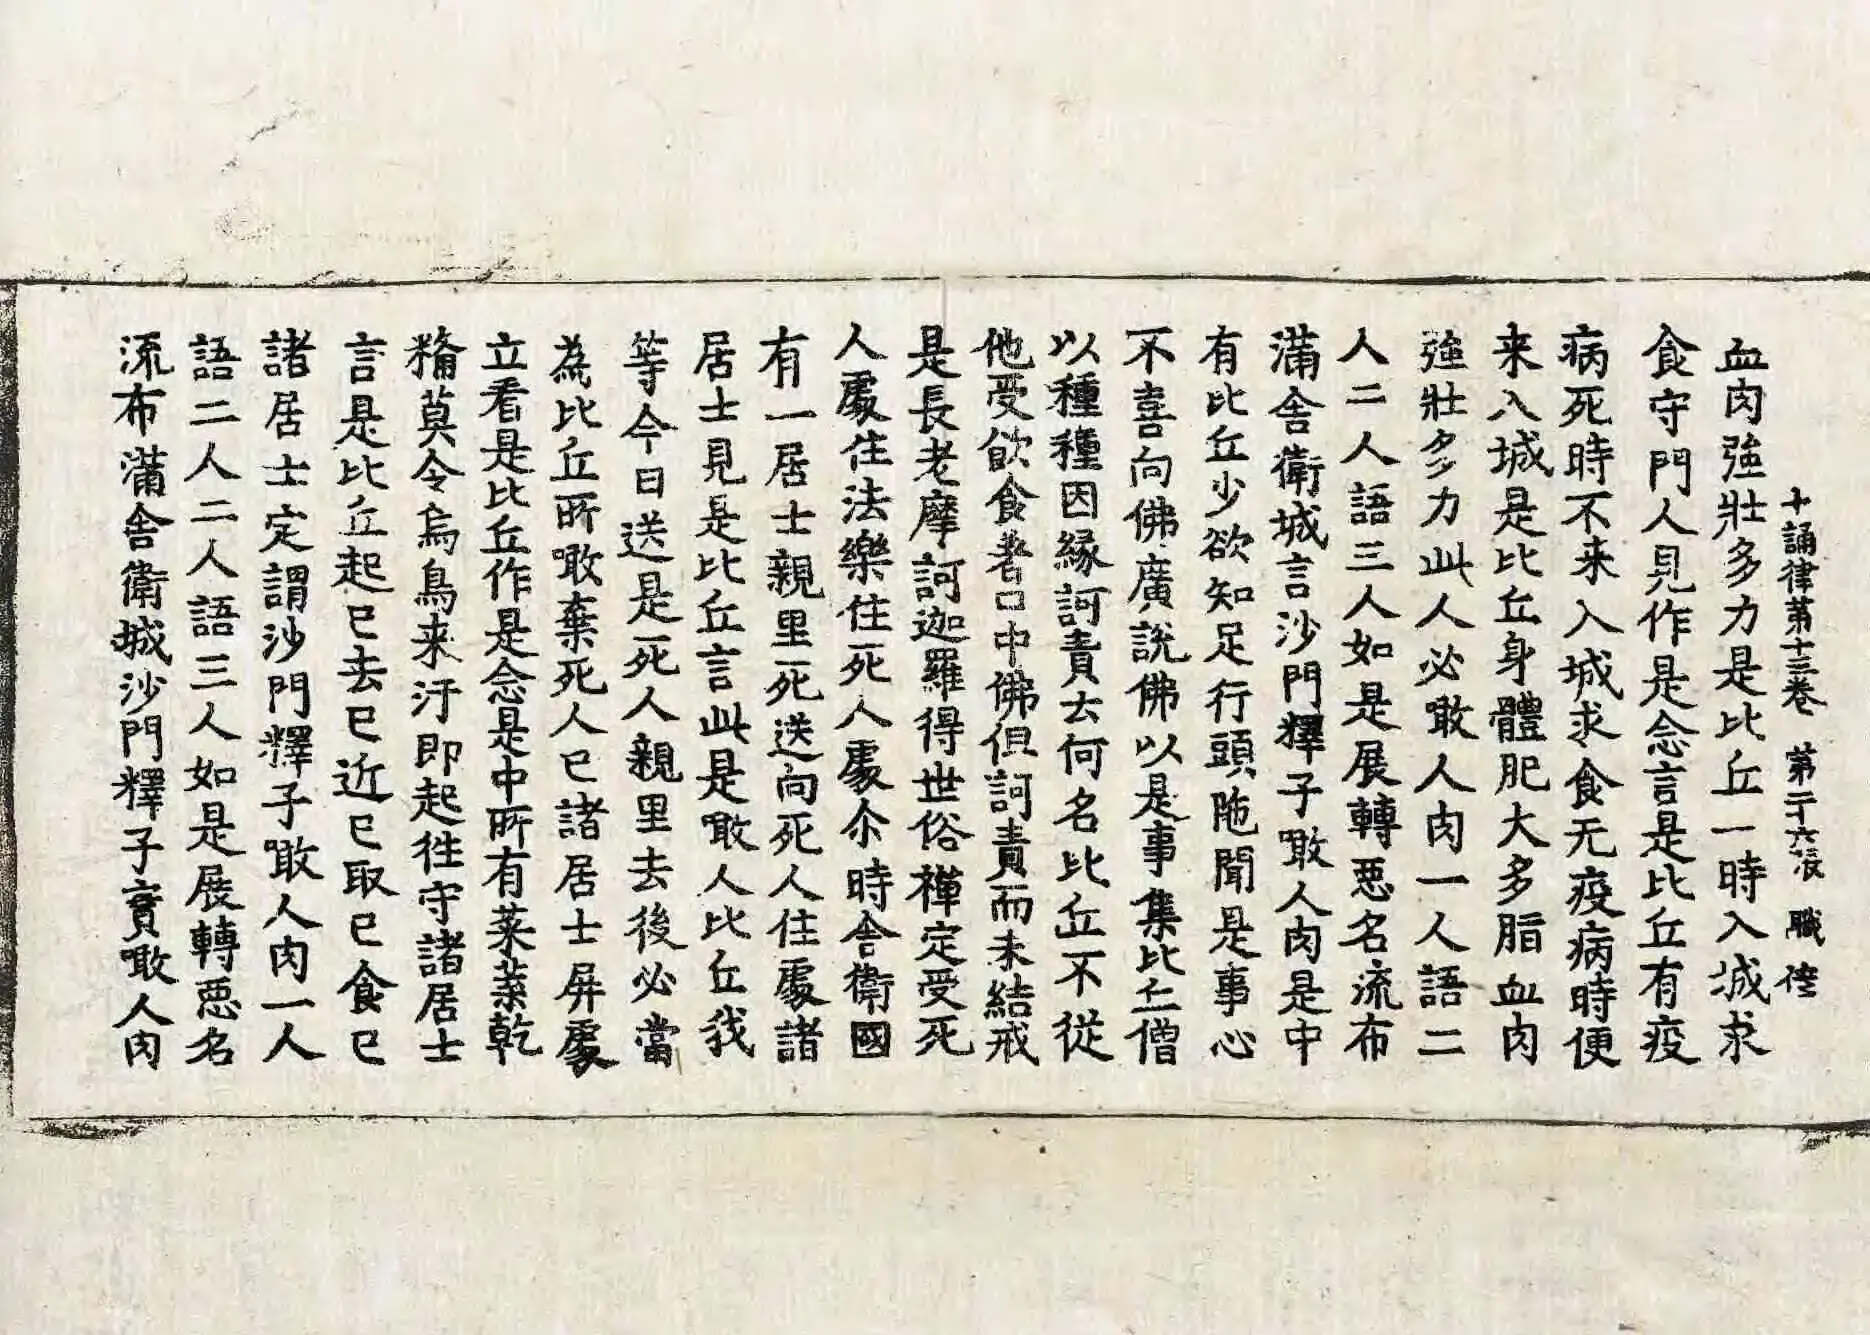 十誦律第十三卷 第二十六張 職
血肉強壯多力是比丘一時入城求
食守門人見作是念言是比丘有疫
病死時不来入城求食无疫病時便
来入城是比丘身體肥大多脂血肉
強壯多力此人必噉人肉一人語二
人二人語三人如是展轉惡名流布
滿舍衛城言沙門釋子噉人肉是中
有比丘少欲知足行頭陁聞是事心
不喜向佛廣說佛以是事集比丘僧
以種種因緣訶責云何名比丘不從
他受飮食著口中佛但訶責而未結戒
是長老摩訶迦羅得世俗禪定受死
人處住法樂住死人處尒時舍衛國
有一居士親里死送向死人住處諸
居士見是比丘言此是噉人比丘我
等今日送是死人親里去後必當
為比丘所噉棄死人已諸居士屏處
立看是比丘作是念是中所有菜乾
糒莫令烏鳥来汙即起往守諸居士
言是比丘起已去已近已取已食已
諸居士定謂沙門釋子噉人肉一人
語二人二人語三人如是展轉惡名
流布滿舍衛城沙門釋子實噉人肉